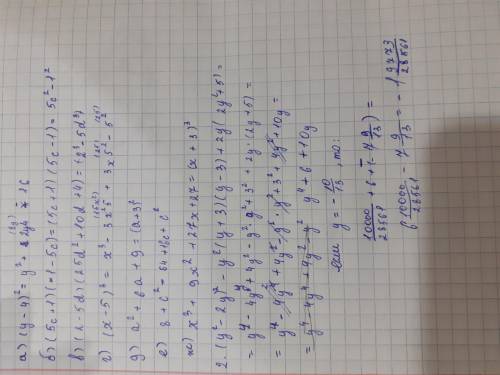 а) (y-4)² = y² + 16
б) (5c+1)(-1-5c) = (5c+1)(5c-1) = 5c²-1²
в) (2-5d)(25d²+10d+4) = (2³-5d³)
г) (x-5)³ = x³ - 3x²5 + 3x5² - 5²
д) a²+6a+9 = (a+3)²
е) 8+c²=
ж) x³+9x²+27x+27 = (x+3)³
2. (y²-2y)² - y²(y+3)(y-3) + 2y(2y²+5) =
= y⁴ - 4y³ + 4y² - y² · y² + 3² + 2y · (2y+5) =
= y⁴ - 4y⁴ + 4y² - y² · y² + 3² + 4y² + 10y =
= y⁴ - 4y⁴ + 4y² - y² y⁴ + 6 + 10y
если y = -10/13 то:
10000/28561 + 6 + (-7 9/13) =
6 10000/28561 - 7 9/13 = -1 9773/28561